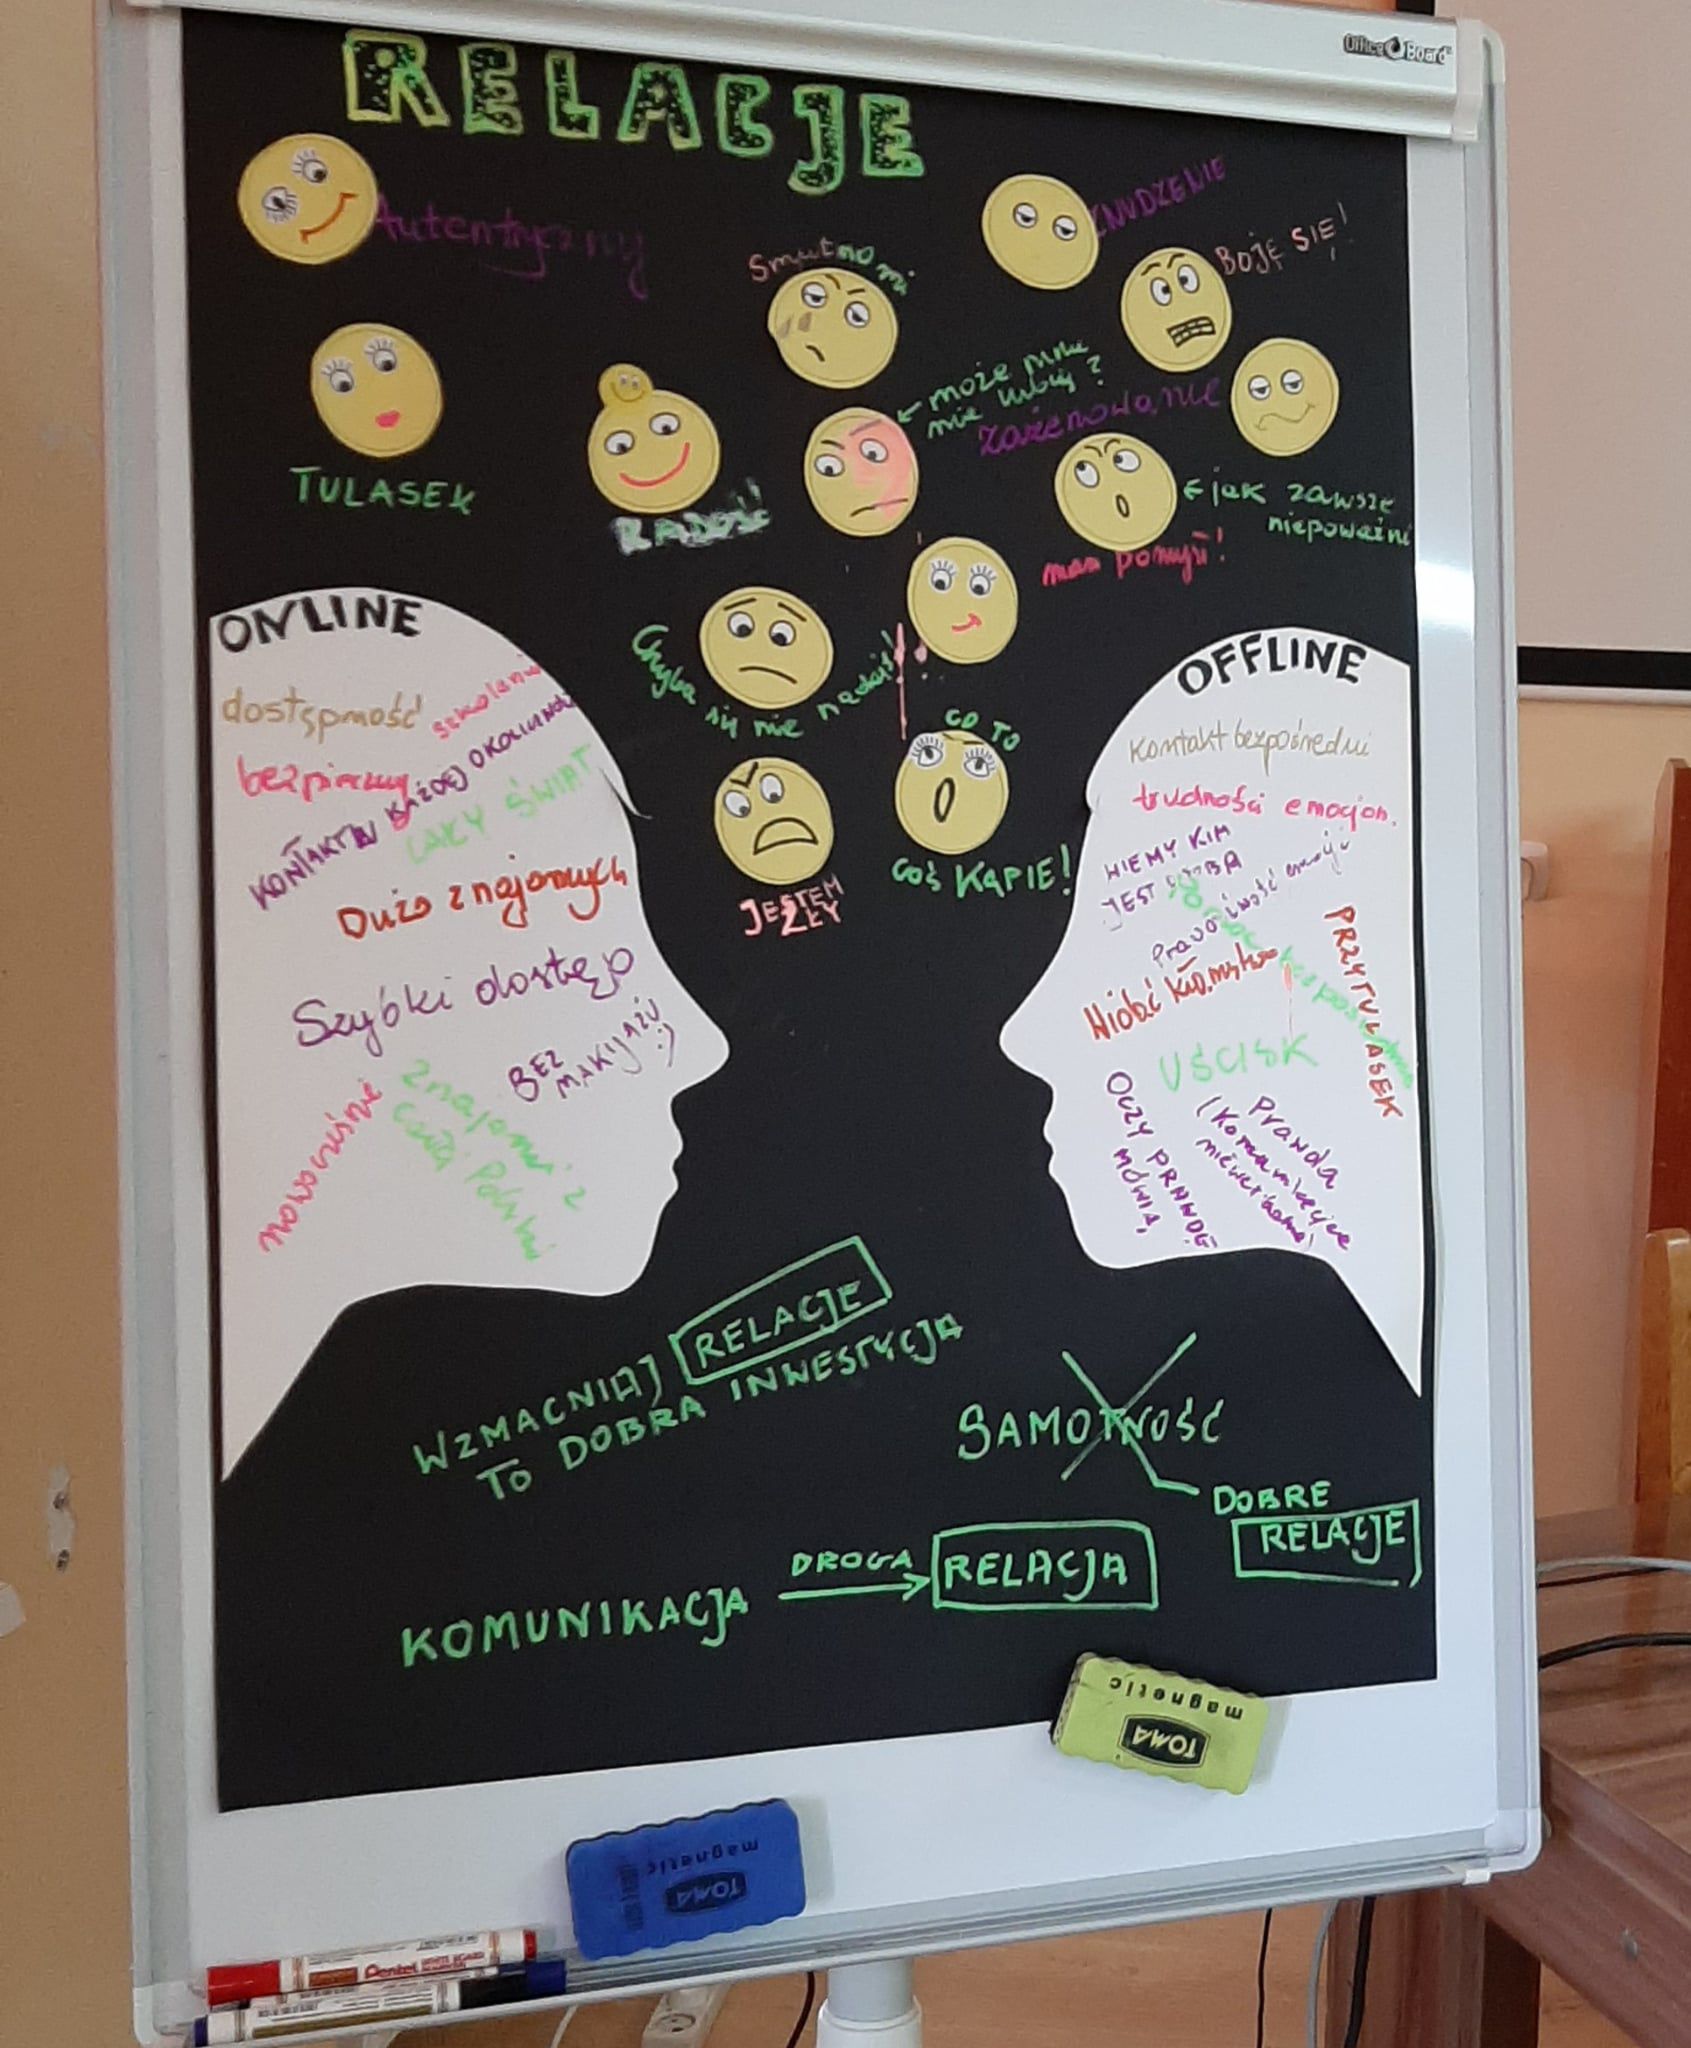 Office Board
RELACJE
Autentyczny
ZNUDZENIE
BOJĘ SIĘ!
Smutno mi
← może mnie
nie lubią?
Zażenowanie
TULASEK
RADOŚĆ!
← jak zawsze
niepoważni
mam pomysł!
Chyba się nie nadaję!
CO TO
COŚ KAPIE!
JESTEM
ZŁY
ONLINE
dostępność
szkolenia
bezpieczny
KONTAKT W KAŻDEJ
CAŁY ŚWIAT
Dużo znajomych
Szybki dostęp
BEZ
MAKIJAŻU :)
nowocześnie
Znajomi z
całej Polski
OFFLINE
Kontakt bezpośredni
trudności emocjon.
WIEMY KIM
JEST OSOBA
PRZYTULASEK
UŚCISK
OCZY PRAWDĘ
MÓWIĄ
Prawda
(Komunikacja
niewerbalna)
WZMACNIAJ RELACJE
TO DOBRA INWESTYCJA
SAMOTNOŚĆ
DOBRE
RELACJE
KOMUNIKACJA DROGA → RELACJA
magnetic
TOMA
magnetic
TOMA
Pentel